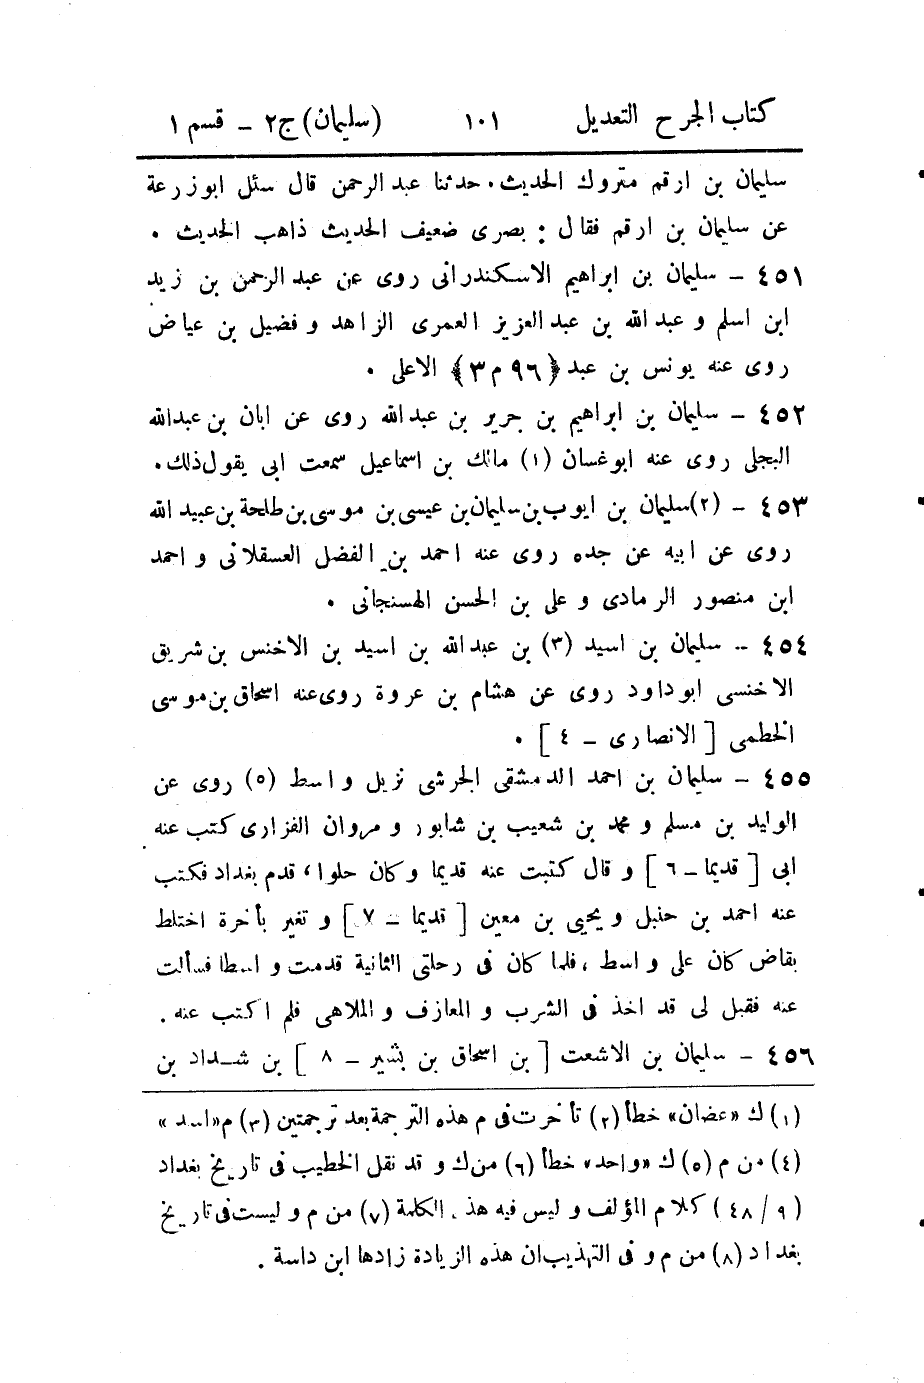 كتاب الجرح التعديل ١٠١ (سليمان) ج٢ – قسم ١
سليمان بن ارقم متروك الحديث. حدثنا عبد الرحمن قال سئل ابوزرعة
عن سليمان بن ارقم فقال : بصرى ضعيف الحديث ذاهب الحديث .
٤٥١ – سليمان بن ابراهيم الاسكندرانى روى عن عبد الرحمن بن زيد
ابن اسلم و عبد الله بن عبد العزيز العمرى الزاهد و فضيل بن عياض
روى عنه يونس بن عبد ﴿٩٦ م ٣﴾ الاعلى .
٤٥٢ – سليمان بن ابراهيم بن جرير بن عبد الله روى عن ابان بن عبدالله
البجلى روى عنه ابوغسان (١) مالك بن اسماعيل سمعت ابى يقول ذلك.
٤٥٣ – (٢) سليمان بن ايوب بن سليمان بن عيسى بن موسى بن طلحة بن عبيد الله
روى عن ابيه عن جده روى عنه احمد بن الفضل العسقلانى و احمد
ابن منصور الرمادى و على بن الحسن الهسنجانى .
٤٥٤ – سليمان بن اسيد (٣) بن عبد الله بن اسيد بن الاخنس بن شريق
الاخنسى ابو داود روى عن هشام بن عروة روى عنه اسحاق بن موسى
الخطمى [ الانصارى – ٤ ] .
٤٥٥ – سليمان بن احمد الدمشقى الجرشى نزيل واسط (٥) روى عن
الوليد بن مسلم و محمد بن شعيب بن شابور و مروان الفزارى كتب عنه
ابى [ قديما – ٦ ] و قال كتبت عنه قديما وكان حلوا، قدم بغداد فكتب
عنه احمد بن حنبل و يحيى بن معين [ قديما – ٧ ] و تغير بأخرة اختلط
بقاض كان على واسط ، فلما كان فى رحلتى الثانية قدمت واسطا فسألت
عنه فقيل لى قد اخذ فى الشرب و المعازف و الملاهى فلم اكتب عنه .
٤٥٦ – سليمان بن الاشعث [ بن اسحاق بن بشير – ٨ ] بن شداد بن
(١) ك «عضان» خطأ (٢) تأخرت فى م هذه الترجمة بعد ترجمتين (٣) م «اسد»
(٤) من م (٥) ك «واحد» خطأ (٦) من ك و قد نقل الخطيب فى تاريخ بغداد
(٩ / ٤٨) كلام المؤلف و ليس فيه هذه الكلمة (٧) من م و ليست فى تاريخ
بغداد (٨) من م و فى التهذيب ان هذه الزيادة زادها ابن داسة .